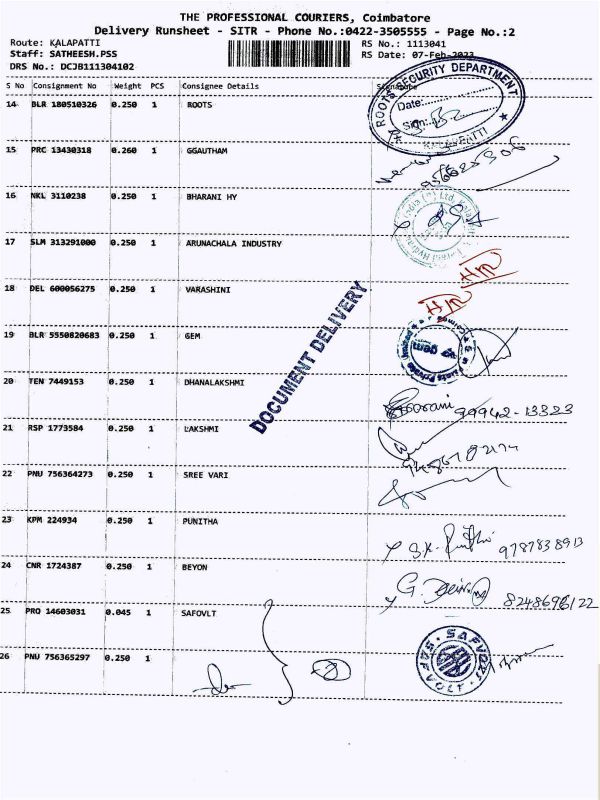 THE PROFESSIONAL COURIERS, Coimbatore
Delivery Runsheet - SITR - Phone No.:0422-3505555 - Page No.:2
Route: KALAPATTI RS No.: 1113041
Staff: SATHEESH.PSS RS Date: 07-Feb-2023
DRS No.: DCJB111304102
S No Consignment No Weight PCS Consignee Details Signature
14 BLR 180510326 0.250 1 ROOTS
ROOTS SECURITY DEPARTMENT
Date:
Sign:
KALAPATTI
15 PRC 13430318 0.260 1 GGAUTHAM
16 NKL 3110238 0.250 1 BHARANI HY
17 SLM 313291000 0.250 1 ARUNACHALA INDUSTRY
HM
18 DEL 600056275 0.250 1 VARASHINI
HM
19 BLR 5550820683 0.250 1 GEM
gem
DOCUMENT DELIVERY
20 TEN 7449153 0.250 1 DHANALAKSHMI
99942-13323
21 RSP 1773584 0.250 1 LAKSHMI
22 PNU 756364273 0.250 1 SREE VARI
23 KPM 224934 0.250 1 PUNITHA
9787838913
24 CNR 1724387 0.250 1 BEYON
25 PRO 14603031 0.045 1 SAFOVLT
26 PNU 756365297 0.250 1
SAFVOLT
SAFVOLT